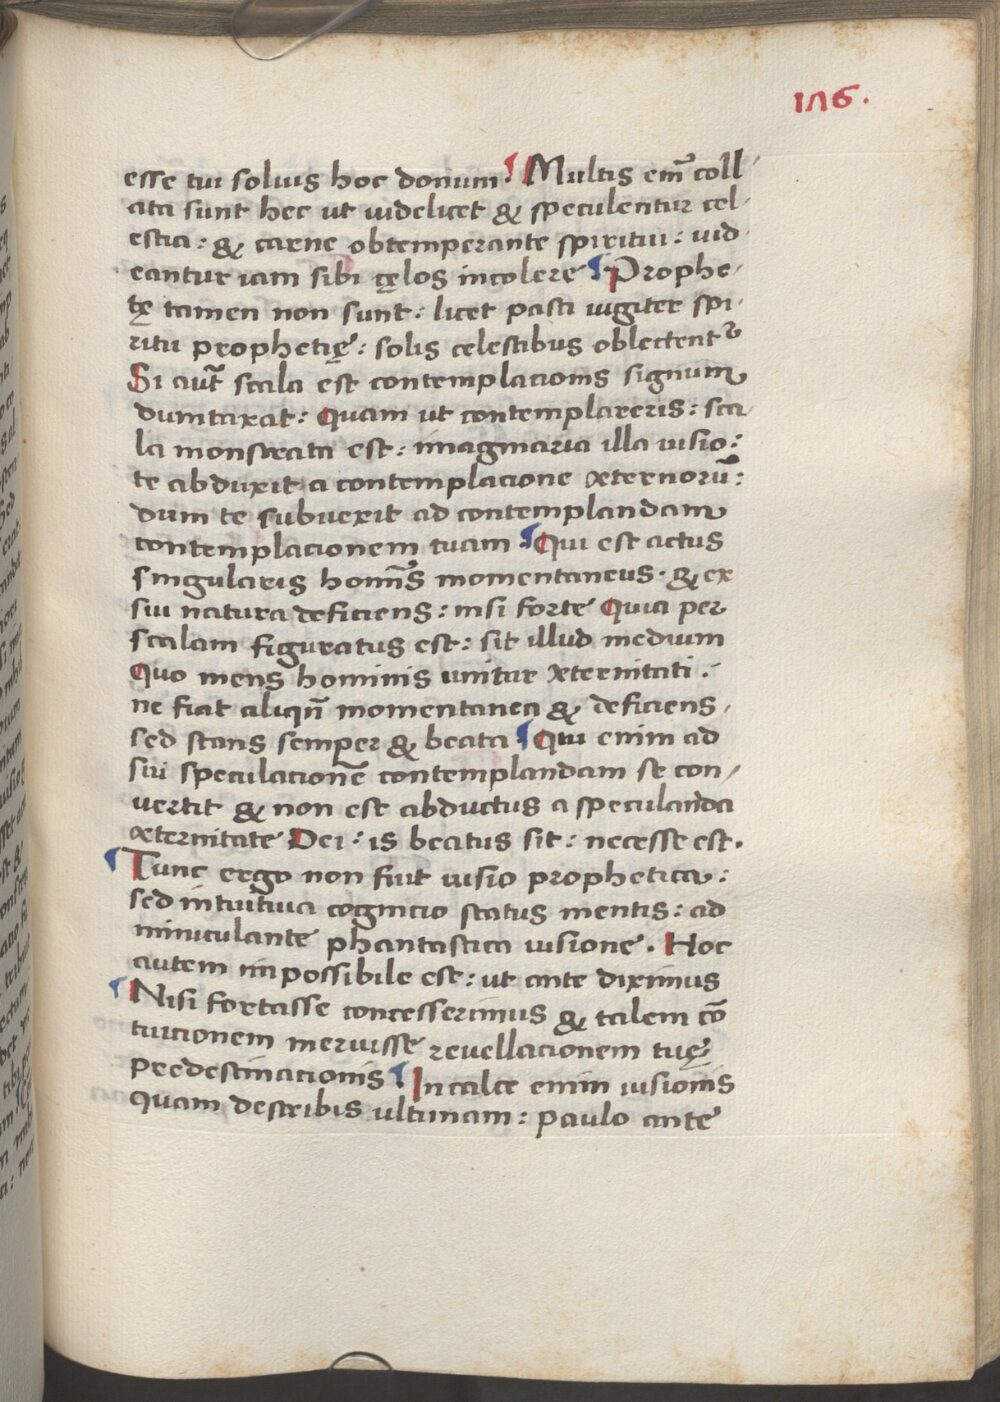 176.
esse tui solius hoc donum. ¶ Multis em̄ coll-
ata sunt hec ut uidelicet & speculentur cel-
estia: & carne obtemperante spiritui: uid-
eantur iam sibi cęlos incolere ¶ Prophe-
tę tamen non sunt: licet pasti iugiter spi-
ritu prophetię: solis celestibus oblectent᷑
Si aut̄ scala est contemplacionis signum
dumtaxat: Quam ut contemplareris: sca-
la monstrata est: imaginaria illa uisio:
te abduxit a contemplacione æternorū:
dum te subuexit ad contemplandam
contemplacionem tuam ¶ Qui est actus
singularis homīs momentaneus. & ex
sui natura deficiens: nisi forte Quia per
scalam figuratus est: sit illud medium
Quo mens hominis unitur æternitati:
ne fiat aliqn̄ momentanea & deficiens,
sed stans semper & beata ¶ Qui enim ad
sui speculacionē contemplandam se con-
uertit & non est abductus a speculanda
æternitate Dei: is beatus sit: necesse est.
¶ Tunc ergo non fuit uisio prophetica:
sed intuitiua cognicio status mentis: ad
miniculante phantastica uisione. Hoc
autem impossibile est: ut ante diximus
¶ Nisi fortasse concesserimus & talem cō
tuicionem meruisse reuellacionem tuę
predestinacionis ¶ In calce enim uisionis
quam describis ultimam: paulo ante